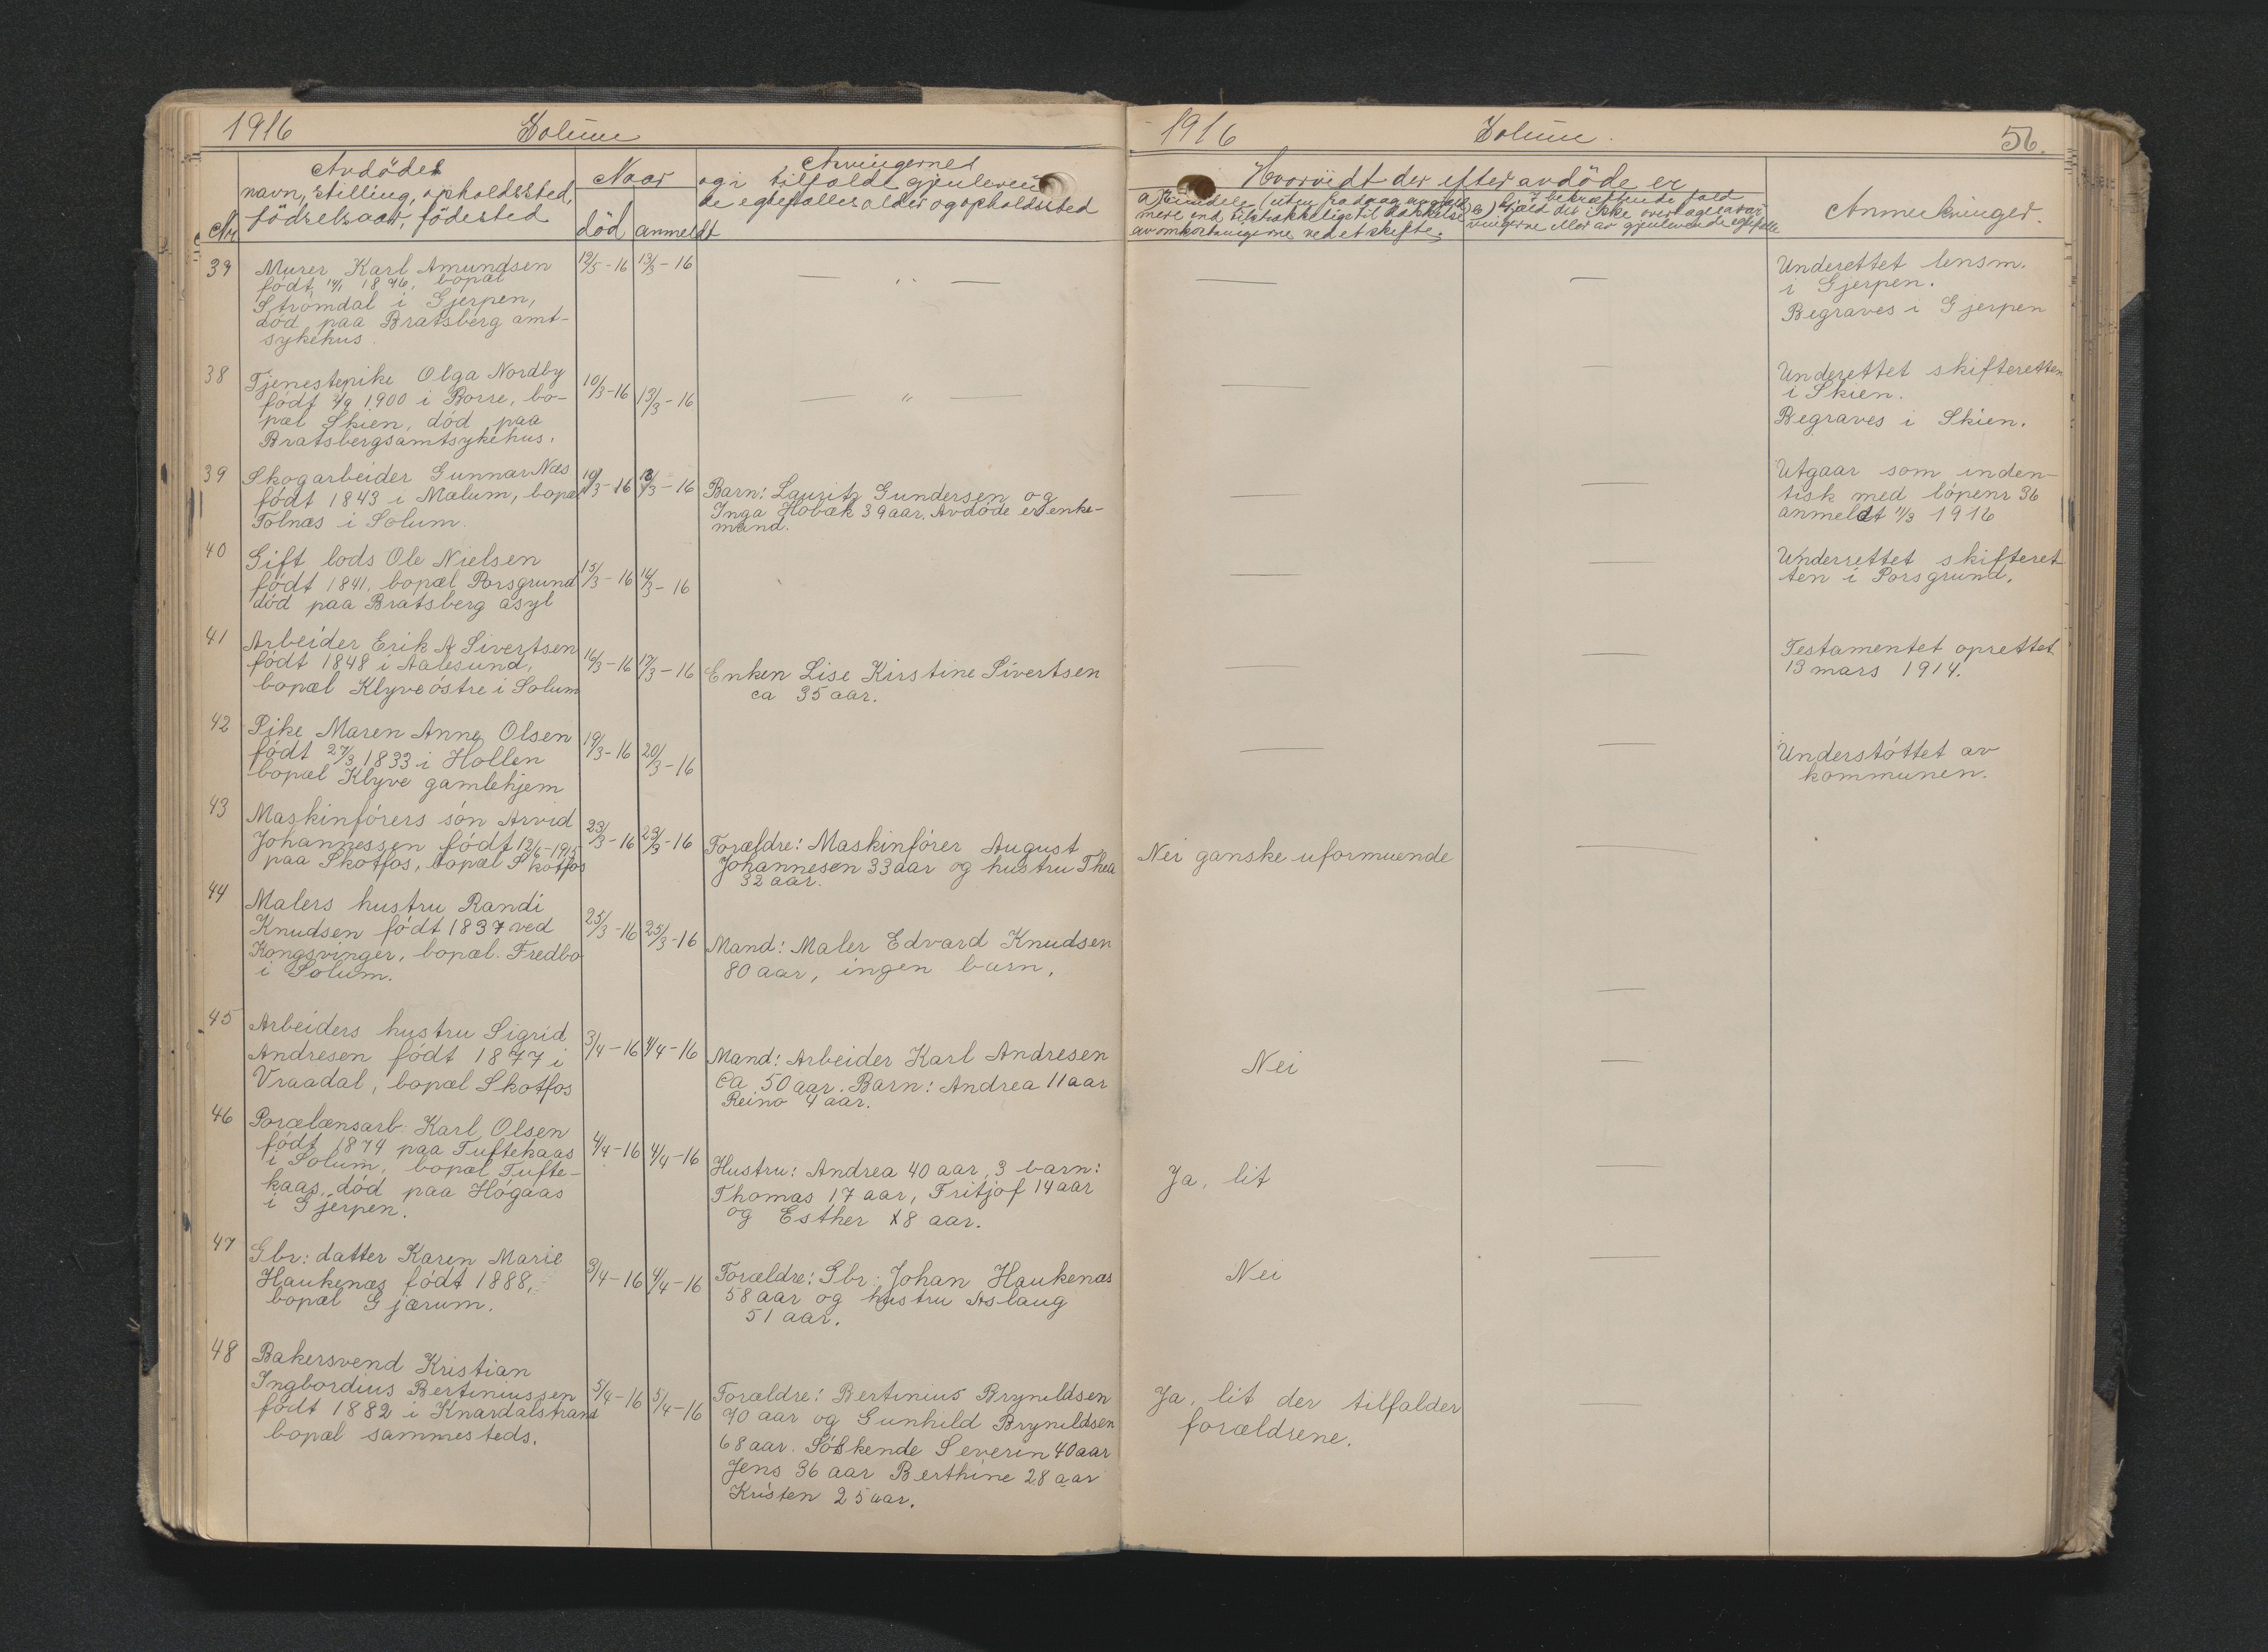 1916 Solum
Avdödes
navn, stilling, opholdssted,
födselsaar, födested
Nr
Naar
död anmeldt
Arvingernes
og i tilfælde gjenleven
de egtefælles alder og opholdssted
39 Murer Karl Amundsen
født 1876, bopæl
Strömdal i Gjerpen,
död paa Bratsberg amt-
sykehus.
12/5-16 13/3-16
— " —
38 Tjenestepike Olga Nordby
født 2/9 1900 i Borre, bo-
pæl Skien, död paa
Bratsbergsamtsykehus.
10/3-16 13/3-16
— " —
39 Skogarbeider Gunnar Næs
født 1843 i Mælum, bopæl
Tolnæs i Solum.
10/3-16 13/3-16
Barn: Lauritz Gundersen og
Inga Hobæk 39 aar. Avdöde er enke-
mand.
40 Gift lods Ole Nielsen
født 1841, bopæl Porsgrund
död paa Bratsberg asyl
15/3-16 16/3-16
41 Arbeider Erik A Sivertsen
født 1848 i Aalesund,
bopæl Klyve östre i Solum
16/3-16 17/3-16
Enken Lise Kirstine Sivertsen
ca 35 aar.
42 Pike Maren Anne Olsen
født 27/3 1833 i Hollen
bopæl Klyve gamlehjem
19/3-16 20/3-16
43 Maskinförers sön Arvid
Johannessen födt 12/6-1915
paa Skotfos, bopæl Skotfos
23/3-16 23/3-16
Forældre: Maskinförer August
Johannesen 33 aar og hustru Thea
32 aar.
44 Malers hustru Randi
Knudsen födt 1837 ved
Kongsvinger, bopæl. Fredbo
i Solum.
25/3-16 25/3-16
Mand: Maler Edvard Knudsen
80 aar, ingen barn.
45 Arbeiders hustru Sigrid
Andresen födt 1877 i
Vraadal, bopæl Skotfos
3/4-16 4/4-16
Mand: Arbeider Karl Andresen
Ca 50 aar. Barn: Andrea 11 aar
Reino 4 aar.
46 Porcelænsarb. Karl Olsen
födt 1874 paa Tuftekaas
i Solum, bopæl Tufte-
kaas, död paa Högaas
i Gjerpen.
4/4-16 4/4-16
Hustru: Andrea 40 aar, 3 barn:
Thomas 17 aar, Fritjof 14 aar
og Esther 8 aar.
47 Gbr: datter Karen Marie
Haukenæs födt 1888,
bopæl Gjærum.
3/4-16 4/4-16
Forældre: Gbr. Johan Haukenæs
58 aar og hustru Aslaug
51 aar.
48 Bakersvend Kristian
Ingbordius Bertiniussen
födt 1882 i Knardalstrand
bopæl sammesteds.
5/4-16 5/4-16
Forældre: Bertinius Brynildsen
70 aar og Gunhild Brynildsen
68 aar. Söskende Severin 40 aar
Jens 36 aar Berthine 28 aar
Kristen 25 aar.
1916 Solum. 56.
Hvorvidt der efter avdöde er
a) Eiendele (uten fradrag av gjæld)
mere end tilstrækkelig til dækkelse
av omkostningerne ved et skifte.
b) I bekræftende fald
Gjæld der ikke overtages av ar-
vingerne eller av gjenlevende egtefælle
Anmerkninger.
Underettet lensm.
i Gjerpen.
Begraves i Gjerpen
Underettet skifteretten
i Skien.
Begraves i Skien.
Utgaar som inden-
tisk med löpenr 36
anmeldt 11/3 1916
Underrettet skifteret
ten i Porsgrund.
Testamentet oprettet
13 mars 1914.
Understöttet av
kommunen.
Nei ganske uformuende
Nei
Ja, lit
Nei
Ja, lit der tilfalder
forældrene.